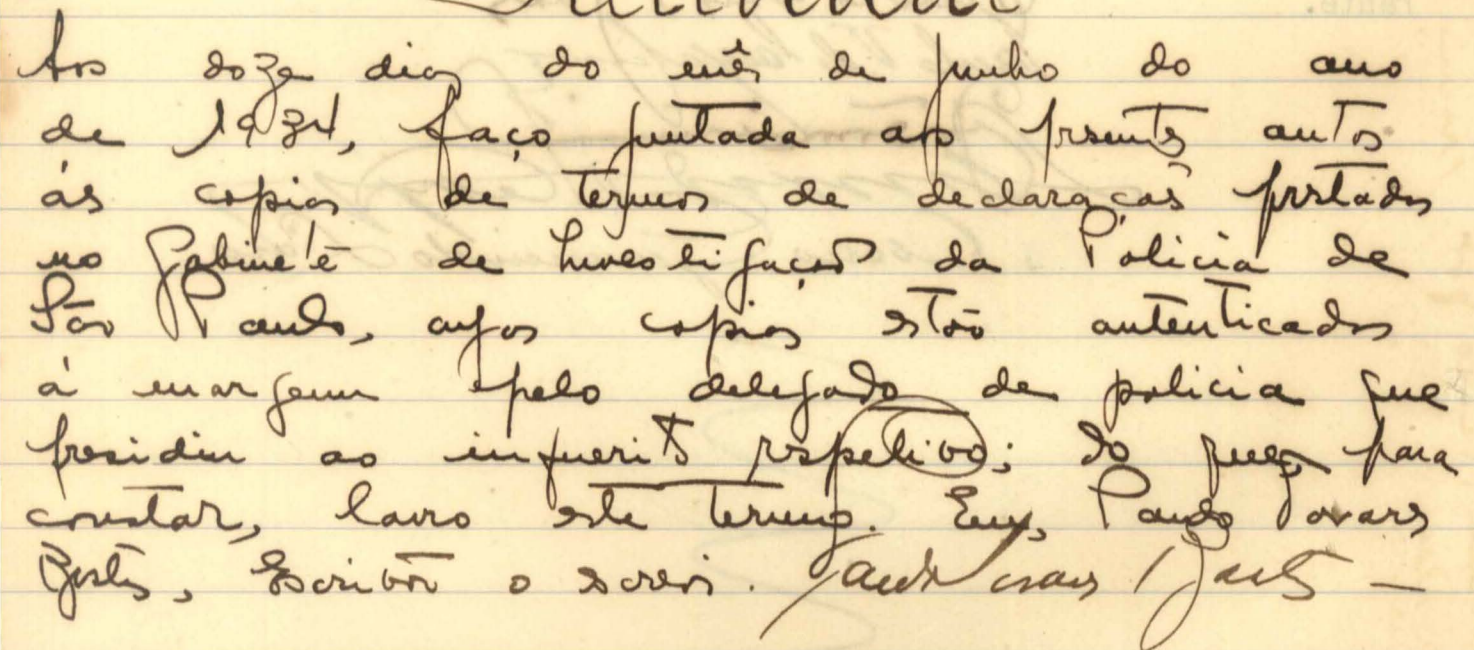 Aos doze dias do mês de junho do ano
de 1934, faço juntada aos presentes autos
ás copias de termos de declarações prestadas
no Gabinete de Investigações da Policia de
São Paulo, cujas copias estão autenticadas
á margem pelo delegado de policia que
presidiu ao inquerito respetivo; do que, para
constar, lavro este termo. Eu, Paulo
, Escrivão o escrevi.